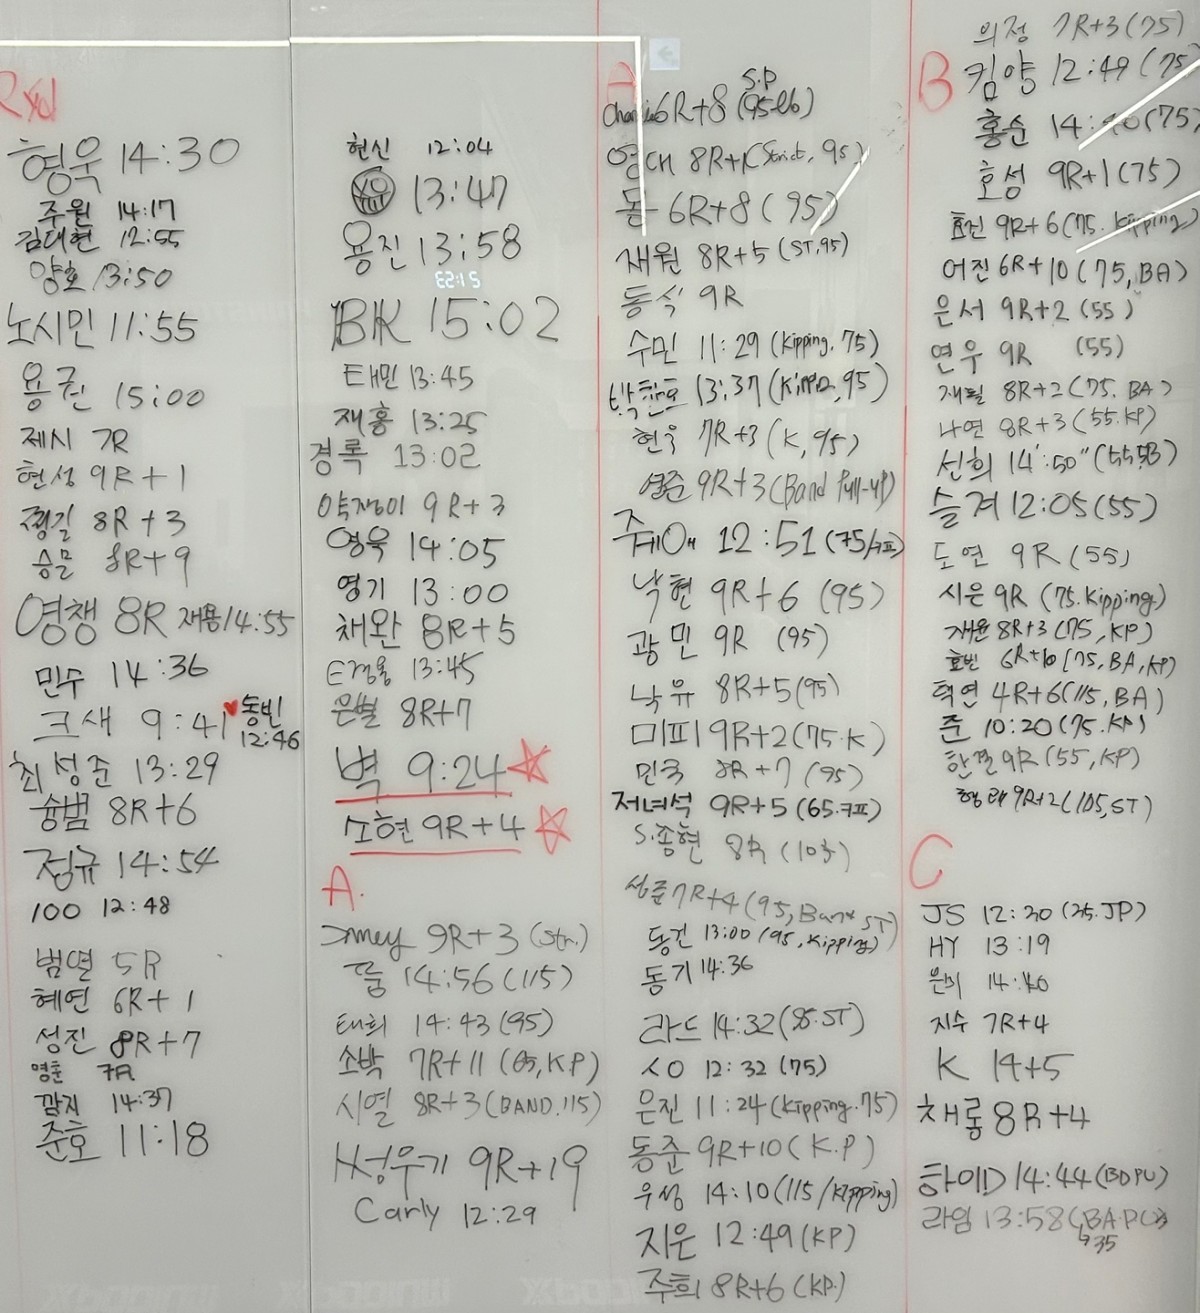 Rxd
형욱 14:30
주원 14:17
김대현 12:55
양호 13:50
노시민 11:55
용권 15:00
제시 7R
현성 9R+1
평길 8R+3
승믈 8R+9
영챙 8R 재용 14:55
민수 14:36
크새 9:41 ♥ 동빈
12:46
최성준 13:29
숭범 8R+6
정규 14:54
100 12:48
범면 5R
혜연 6R+1
성진 8R+7
명훈 7R
깜지 14:37
준호 11:18
현신 12:04
13:47
용진 13:58
BK 15:02
태민 13:45
재홍 13:25
경록 13:02
약쟁이 9R+3
영욱 14:05
영기 13:00
채완 8R+5
E경용 13:45
은별 8R+7
벽 9:24 ☆
소현 9R+4 ☆
A.
9R+3 (Str.)
14:56 (115)
태희 14:43 (95)
소박 7R+11 (65, KP)
시열 8R+3 (BAND. 115)
9R+19
Carly 12:29
A
S.P
Charlie 6R+8 (95lb)
영대 8R+1 (Strict, 95)
돈 6R+8 (95)
재원 8R+5 (ST, 95)
동식 9R
수민 11:29 (Kipping. 75)
박찬호 13:37 (95)
현욱 7R+3 (K, 95)
영준 9R+3 (Band Pull-up)
쥬에 12:51 (75/키핑)
낙현 9R+6 (95)
광민 9R (95)
낙유 8R+5 (95)
미피 9R+2 (75. K)
민국 8R+7 (95)
저녀석 9R+5 (65.)
S.종현 8R
성준 7R+4 (95, Band ST)
동건 13:00 (95, Kipping)
동기 14:36
라드 14:32 (85. ST)
ㅅㅇ 12:32 (75)
은진 11:24 (Kipping. 75)
동준 9R+10 (K.P)
우성 14:10 (115/Kipping)
지은 12:49 (KP)
주희 8R+6 (KP.)
의정 7R+3 (75)
B
킴양 12:49 (75)
홍순 14:40 (75)
호성 9R+1 (75)
효진 9R+6 (75. Kipping)
어진 6R+10 (75, BA)
은서 9R+2 (55)
연우 9R (55)
재필 8R+2 (75. BA)
나연 8R+3 (55. KP)
선희 14':50"
슬겨 12:05 (55)
도연 9R (55)
시은 9R (75. Kipping)
재윤 8R+3 (75, KP)
효빈 6R+10 (75, BA, KP)
혁연 4R+6 (115, BA)
준 10:20 (75. KP)
한결 9R (55, KP)
형래 9R+2 (105, ST)
C
JS 12:20 (25. JP)
HY 13:19
은비 14:40
지수 7R+4
K 14+5
채롱 8R+4
하이D 14:44 (BDPU)
라임 13:58 (BA.PU)
↳35